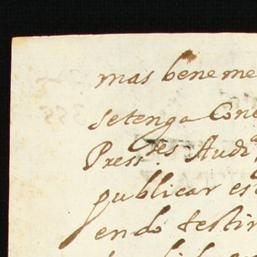 mas bene me
se tenga Con
Press.tes Audi
publicar es
endo testi